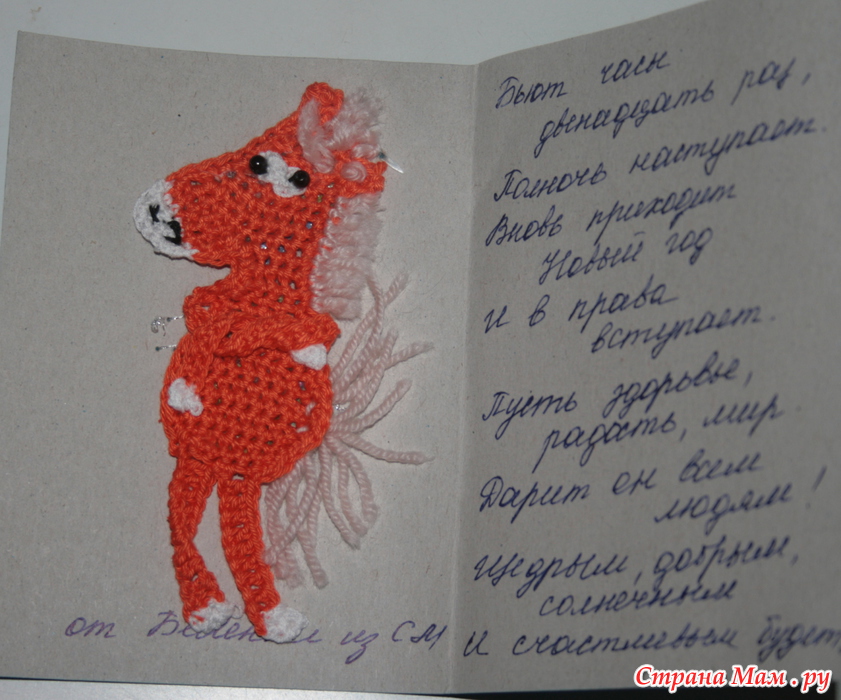 Бьют часы
двенадцать раз,
Полночь наступает.
Вновь приходит
Новый год
и в права
вступает.
Пусть здоровье,
радость, мир
Дарит он всем
людям!
Щедрым, добрым,
солнечным
и счастливым будет
от из СМ
Страна Мам.ру